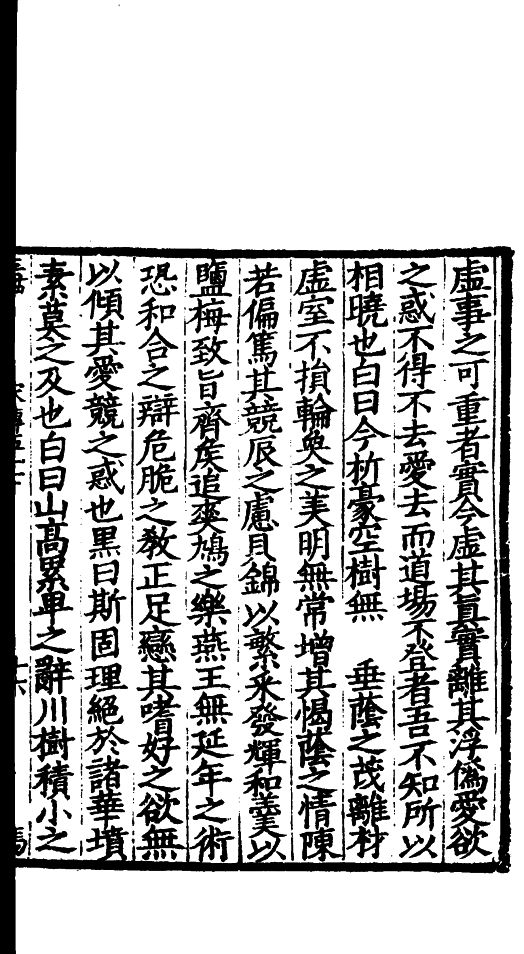 虛事之可重者實今虛其眞實離其浮僞愛欲
之惑不得不去愛去而道場不登者吾不知所以
相曉也白曰今析豪空樹無　垂蔭之茂離材
虛室不損輪奐之美明無常增其愒蔭之情陳
若偏篤其競辰之慮貝錦以繁采發輝和羹以
鹽梅致旨齊矦追爽鳩之樂燕王無延年之術
恐和合之辯危脆之教正足戀其嗜好之欲無
以傾其愛競之惑也黑曰斯固理絕於諸華墳
素莫之及也白曰山高累卑之辭川樹積小之